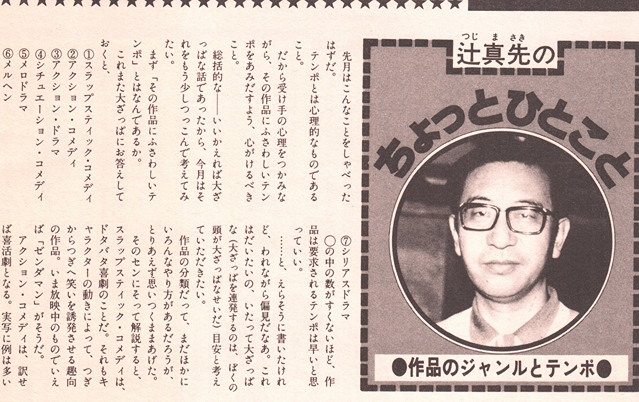 つじ まさき
辻真先の
ちょっとひとこと
●作品のジャンルとテンポ●
先月はこんなことをしゃべった
はずだ。
テンポとは心理的なものである
こと。
だから受け手の心理をつかみな
がら、その作品にふさわしいテン
ポをあみだすよう、心がけるべき
こと。
総括的な――いいかえれば大ざ
っぱな話であったから、今月はそ
れをもう少しつっこんで考えてみ
たい。
まず「その作品にふさわしいテ
ンポ」とはなんであるか。
これまた大ざっぱにお答えして
おくと、
①スラップスティック・コメディ
②アクション・コメディ
③アクション・ドラマ
④シチュエーション・コメディ
⑤メロドラマ
⑥メルヘン
⑦シリアスドラマ
◯の中の数がすくないほど、作
品は要求されるテンポは早いと思
っていい。
……と、えらそうに書いたけれ
ど、われながら偏見だなあ。これ
はだいたいの、いたって大ざっぱ
な(大ざっぱを連発するのは、ぼくの
頭が大ざっぱなせいだ)目安と考え
ていただきたい。
作品の分類だって、まだほかに
いろんなやり方があるだろうが、
とりあえず思いつくままあげた。
そのセンにそって解説すると、
スラップスティック・コメディは、
ドタバタ喜劇のことだ。それもキ
ャラクターの動きによって、つぎ
からつぎへ笑いを誘発させる趣向
の作品。いま放映中のものでいえ
ば「ゼンダマン」がそうだ。
アクション・コメディは、訳せ
ば喜活劇となる。実写に例は多い